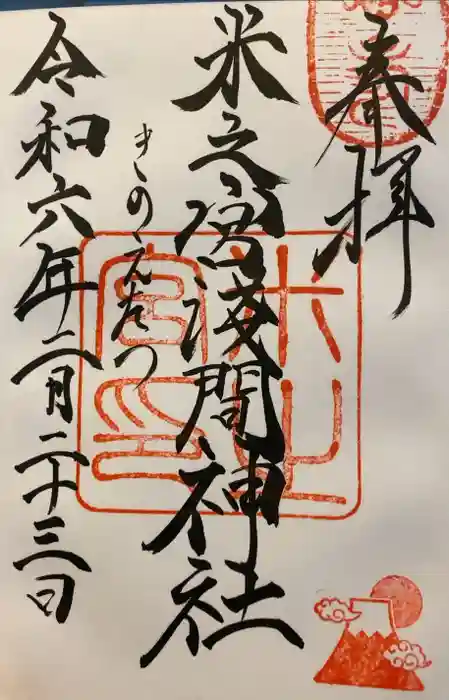 奉拝
米之宮浅間神社
きのえたつ
令和六年二月二十三日
米之宮印